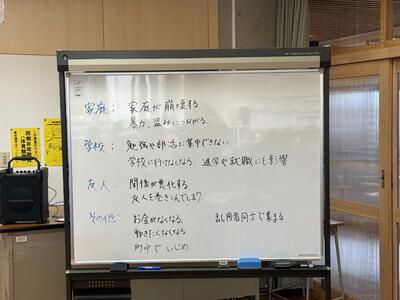 家庭： 家庭が崩壊する
暴力、盗みにつながる
学校： 勉強や部活に集中できない
学校に行けなくなる 進学や就職にも影響
友人： 関係が悪化する
友人を巻きこんでしまう
その他： お金がなくなる 乱用者同士で集まる
働きたくなくなる
町中で いじめ